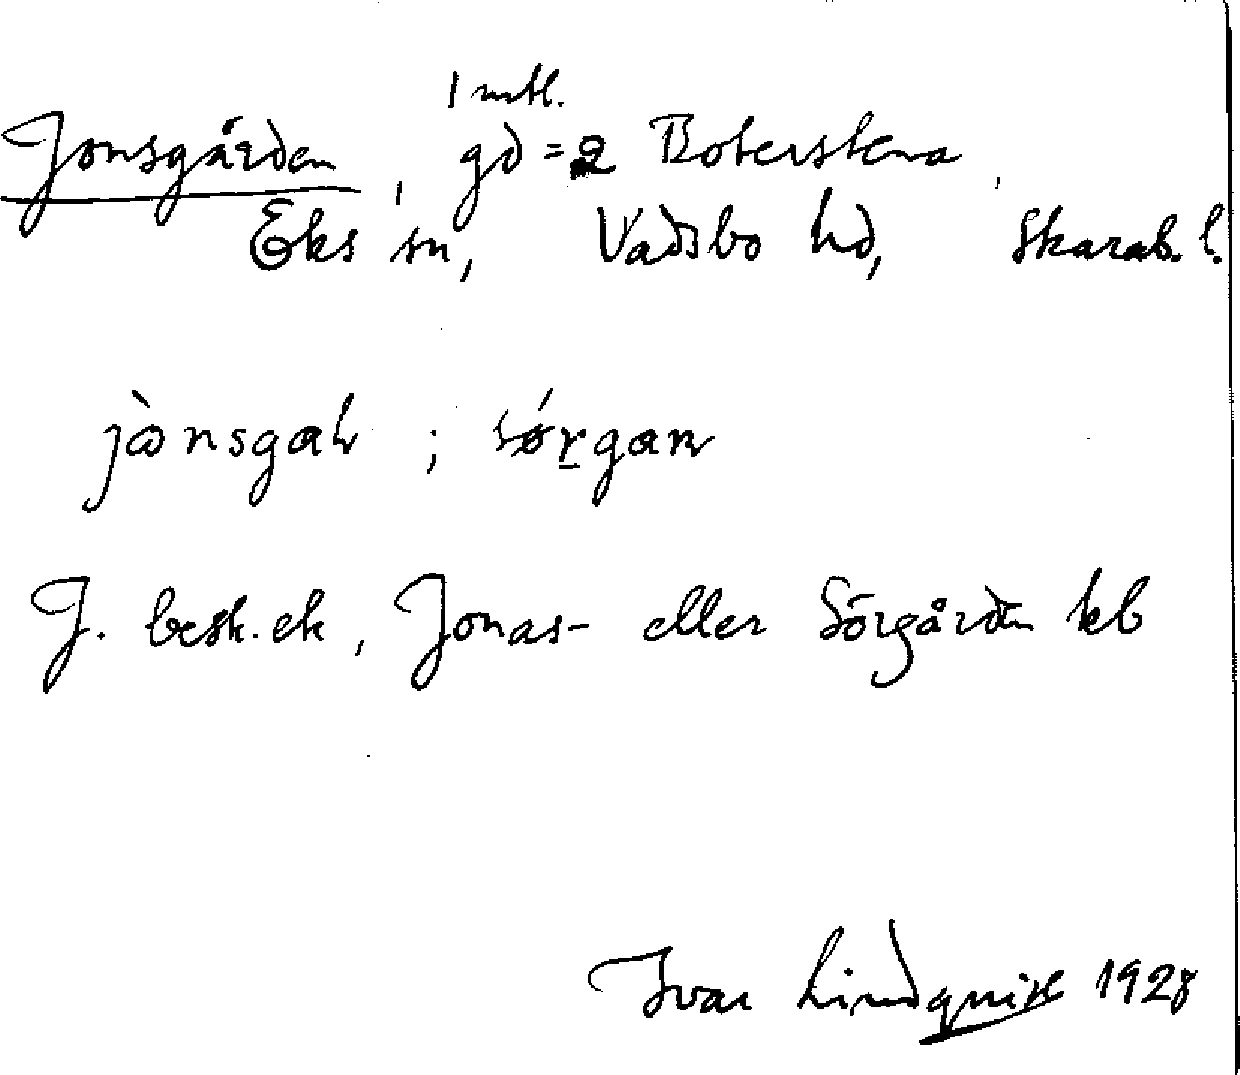 1 mtl.
Jonsgården, gd = 2 Boterstena,
Eks sn, Vadsbo hd, Skarab. l.
jònsgaḷ ; sǿrgan
J. besk. ek, Jonas- eller Sörgården kb
Ivar Lindquist 1928